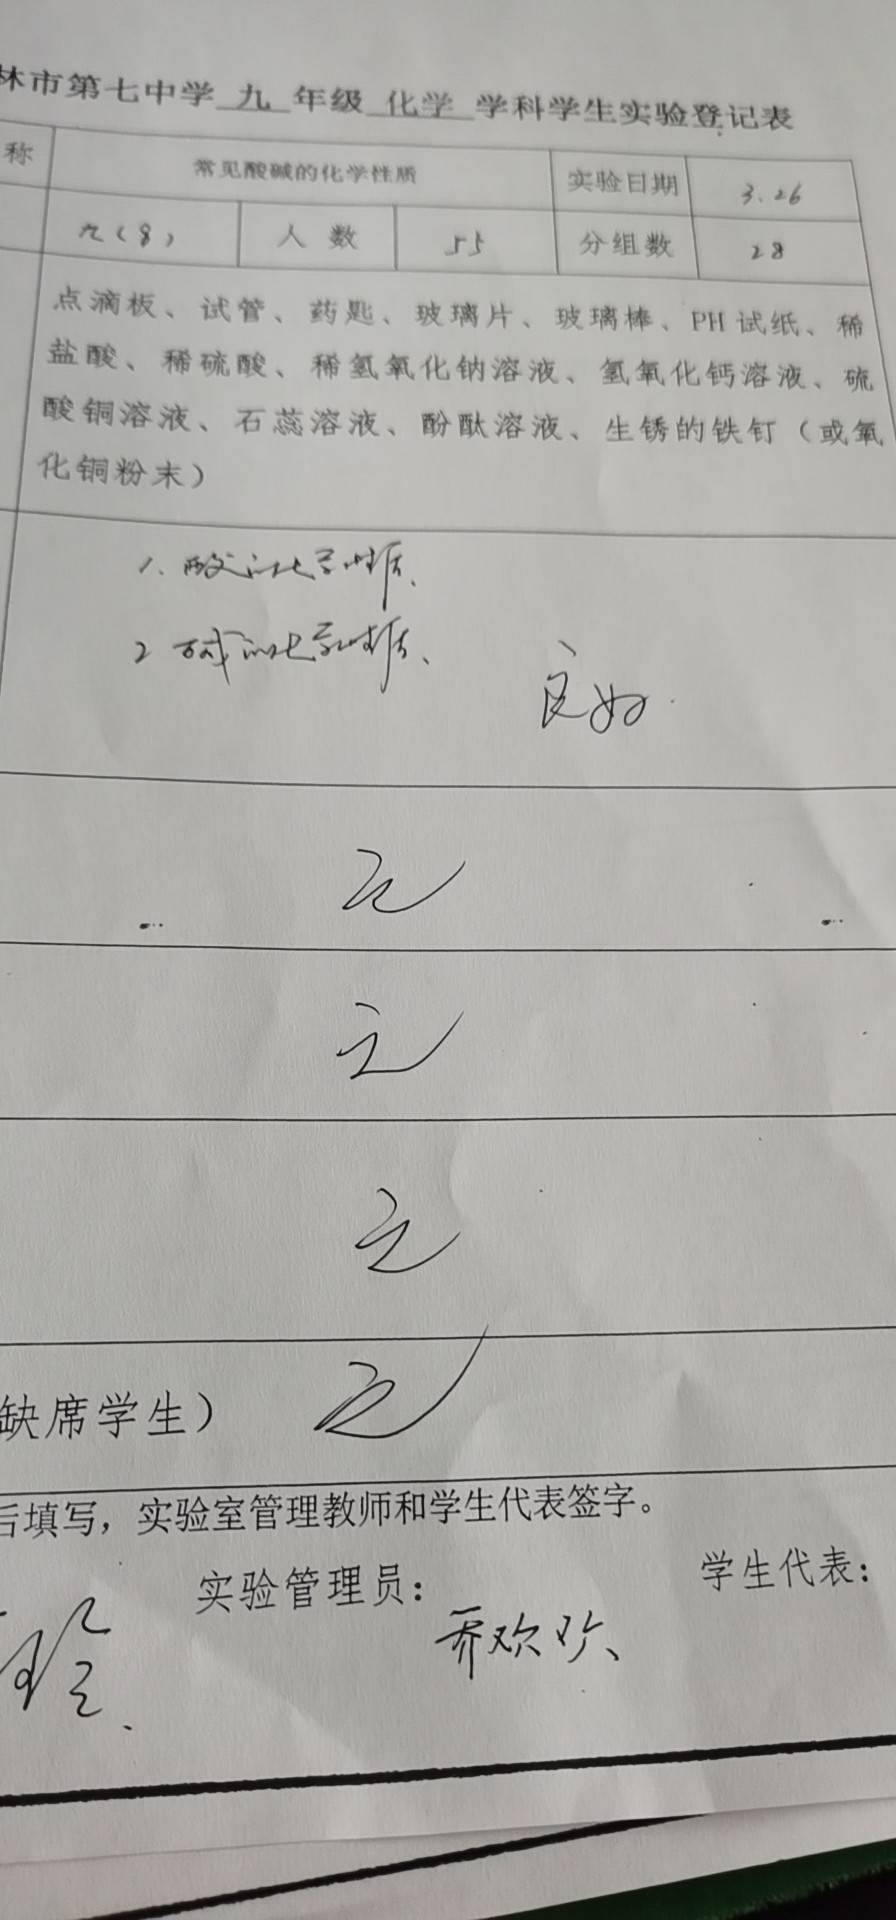 林市第七中学 九 年级 化学 学科学生实验登记表
称 常见酸碱的化学性质 实验日期 3.26
九(8) 人数 55 分组数 28
点滴板、试管、药匙、玻璃片、玻璃棒、PH试纸、稀
盐酸、稀硫酸、稀氢氧化钠溶液、氢氧化钙溶液、硫
酸铜溶液、石蕊溶液、酚酞溶液、生锈的铁钉（或氧
化铜粉末）
1. 酸的化学性质、
2 碱的化学性质、
良好.
无
无
无
缺席学生） 无
后填写，实验室管理教师和学生代表签字。
实验管理员： 学生代表：
乔欢欢、